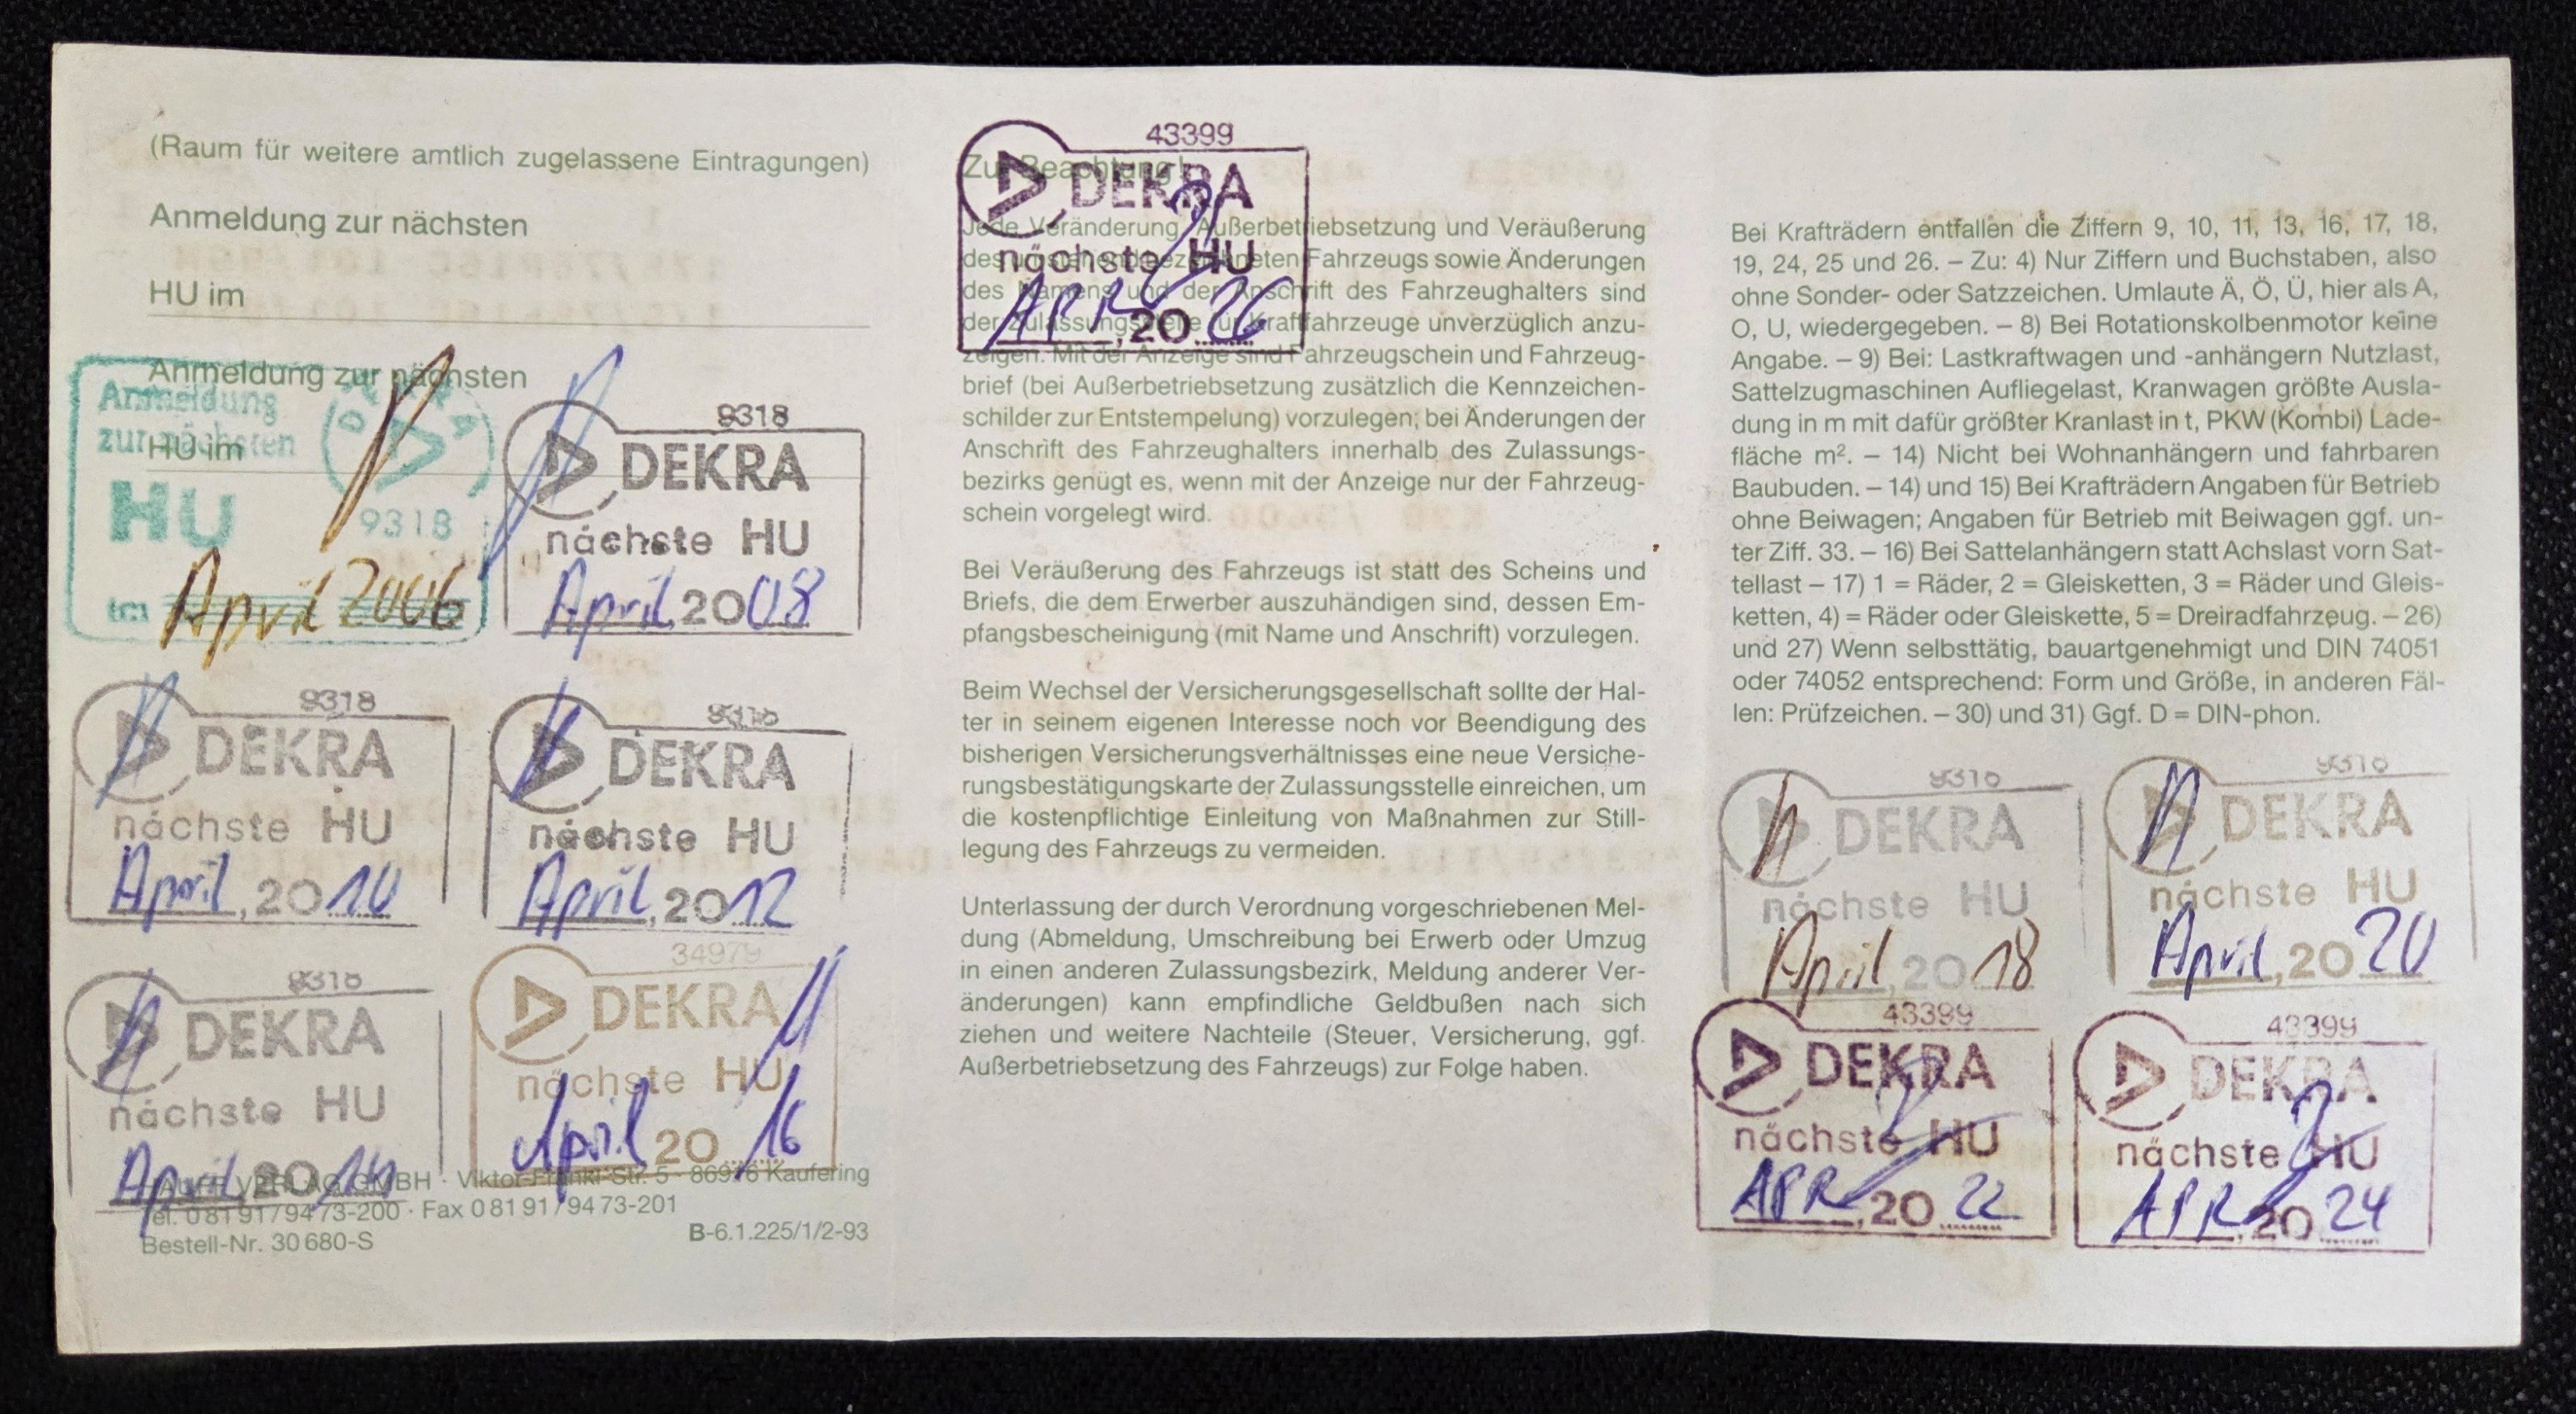 (Raum für weitere amtlich zugelassene Eintragungen)
Anmeldung zur nächsten
HU im
Anmeldung zur nächsten
HU im
Anmeldung
zur nächsten
HU
DEKRA
9318
im April 2006
9318
DEKRA
nächste HU
April, 2008
9318
DEKRA
nächste HU
April, 2010
9318
DEKRA
nächste HU
April, 2012
9318
DEKRA
nächste HU
April, 2014
34979
DEKRA
nächste HU
April 2016
GMBH · Viktor-Frankl-Str. 5 · 86916 Kaufering
Tel. 0 81 91 / 94 73-200 · Fax 0 81 91 / 94 73-201
Bestell-Nr. 30 680-S
B-6.1.225/1/2-93
43399
DEKRA
nächste HU
APR, 20 26
Zur Beachtung!
Jede Veränderung, Außerbetriebsetzung und Veräußerung
des umstehend bezeichneten Fahrzeugs sowie Änderungen
des Namens und der Anschrift des Fahrzeughalters sind
der Zulassungsstelle für Kraftfahrzeuge unverzüglich anzu-
zeigen. Mit der Anzeige sind Fahrzeugschein und Fahrzeug-
brief (bei Außerbetriebsetzung zusätzlich die Kennzeichen-
schilder zur Entstempelung) vorzulegen; bei Änderungen der
Anschrift des Fahrzeughalters innerhalb des Zulassungs-
bezirks genügt es, wenn mit der Anzeige nur der Fahrzeug-
schein vorgelegt wird.
Bei Veräußerung des Fahrzeugs ist statt des Scheins und
Briefs, die dem Erwerber auszuhändigen sind, dessen Em-
pfangsbescheinigung (mit Name und Anschrift) vorzulegen.
Beim Wechsel der Versicherungsgesellschaft sollte der Hal-
ter in seinem eigenen Interesse noch vor Beendigung des
bisherigen Versicherungsverhältnisses eine neue Versiche-
rungsbestätigungskarte der Zulassungsstelle einreichen, um
die kostenpflichtige Einleitung von Maßnahmen zur Still-
legung des Fahrzeugs zu vermeiden.
Unterlassung der durch Verordnung vorgeschriebenen Mel-
dung (Abmeldung, Umschreibung bei Erwerb oder Umzug
in einen anderen Zulassungsbezirk, Meldung anderer Ver-
änderungen) kann empfindliche Geldbußen nach sich
ziehen und weitere Nachteile (Steuer, Versicherung, ggf.
Außerbetriebsetzung des Fahrzeugs) zur Folge haben.
Bei Krafträdern entfallen die Ziffern 9, 10, 11, 13, 16, 17, 18,
19, 24, 25 und 26. – Zu: 4) Nur Ziffern und Buchstaben, also
ohne Sonder- oder Satzzeichen. Umlaute Ä, Ö, Ü, hier als A,
O, U, wiedergegeben. – 8) Bei Rotationskolbenmotor keine
Angabe. – 9) Bei: Lastkraftwagen und -anhängern Nutzlast,
Sattelzugmaschinen Aufliegelast, Kranwagen größte Ausla-
dung in m mit dafür größter Kranlast in t, PKW (Kombi) Lade-
fläche m². – 14) Nicht bei Wohnanhängern und fahrbaren
Baubuden. – 14) und 15) Bei Krafträdern Angaben für Betrieb
ohne Beiwagen; Angaben für Betrieb mit Beiwagen ggf. un-
ter Ziff. 33. – 16) Bei Sattelanhängern statt Achslast vorn Sat-
tellast – 17) 1 = Räder, 2 = Gleisketten, 3 = Räder und Gleis-
ketten, 4) = Räder oder Gleiskette, 5 = Dreiradfahrzeug. – 26)
und 27) Wenn selbsttätig, bauartgenehmigt und DIN 74051
oder 74052 entsprechend: Form und Größe, in anderen Fäl-
len: Prüfzeichen. – 30) und 31) Ggf. D = DIN-phon.
9318
DEKRA
nächste HU
April, 2018
9318
DEKRA
nächste HU
April, 2020
43399
DEKRA
nächste HU
APR, 20 22
43399
DEKRA
nächste HU
APR 20 24